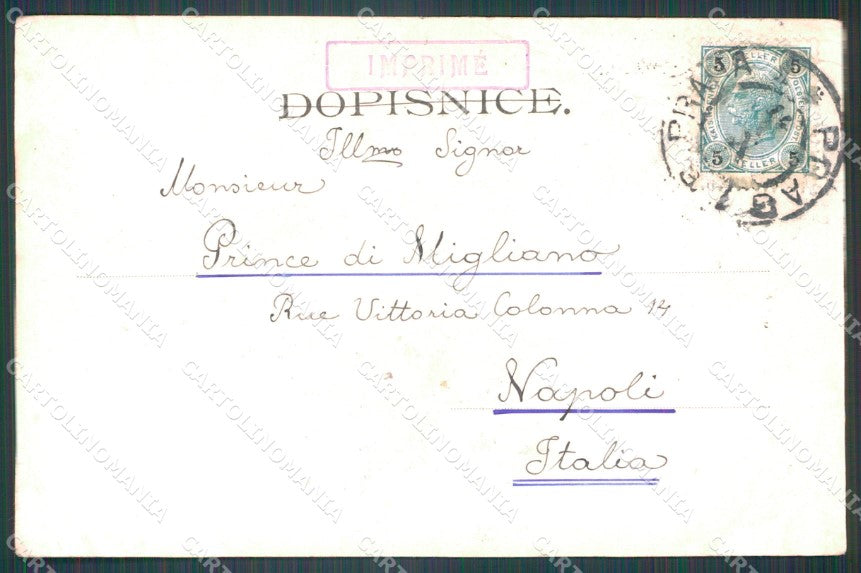 IMPRIMÉ
DOPISNICE.
Illmo Signor
Monsieur
Prince di Migliano
Rue Vittoria Colonna 14
Napoli
Italia
5 HELLER 5
5 HELLER 5
PRAHA PRAG
CARTOLINOMANIA